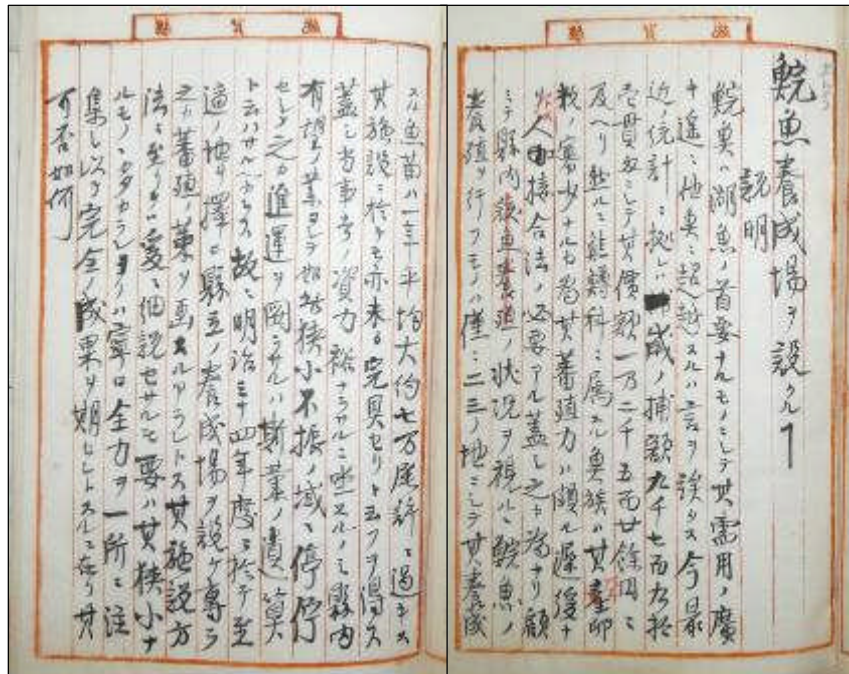 縣賀滋
鯇魚養成場ヲ設クルヿ
説明
鯇魚ハ湖魚ノ首要ナルモノニシテ其需用ノ廣
キ遙ニ他魚ニ超越スルハ言ヲ誶タス今最
近ノ統計ニ拠レハ歳ノ捕額九千七百九拾
壱貫匁ニシテ其價額一万二千五百廿餘円ニ
及ヘリ然ルニ鮭鱒科ニ属スル魚族ハ其産卵
数ノ寡少ナルカ為其蕃殖力ハ頗ル遅緩ナ
リ人工接合法ノ必要アル蓋シ之カ為ナリ顧
ミテ縣内鯇魚養殖ノ状況ヲ視ルニ鯇魚ノ
養殖ヲ行フモノハ僅ニ二三ノ地ニシテ其養成
縣賀滋
スル魚苗ハ一年平均大約七万尾許ニ過キス
其施設ニ於テモ亦未タ完具セリト云フヲ得ス
蓋シ当事者ノ資力裕ナラサルニ坐スルノミ縣内
有望ノ業ヲシテ如此狭小不振ノ域ニ停佇
セシメ之カ進運ヲ図ラサルハ斯業ノ遺算
ト云ハサルヘカラス故ニ明治三十四年度ニ於テ至
適ノ地ヲ擇ミ縣立ノ養成場ヲ設ケ専ラ
之カ蕃殖ノ業ヲ画スルアラントス其施設方
法ニ至リテハ爰ニ細説セサルモ要ハ其狭小ナ
ルモノニタカランヨリハ寧ロ全力ヲ一所ニ注
集シ以テ完全ノ成果ヲ期セントスルニ在リ其
可否如何